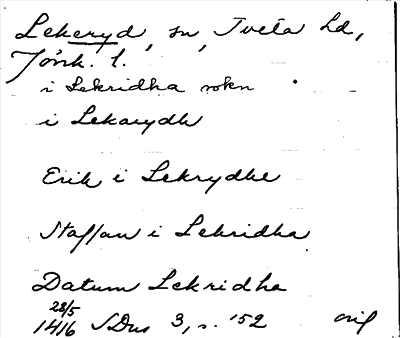 Lekeryd, sn, Tveta hd,
Jönk. l.
i Lekridha sokn
i Lekarydh
Erik i Lekrydhe
Staffan i Lekridha
Datum Lekridha
28/5
1416 SDns 3, s. 152 orig